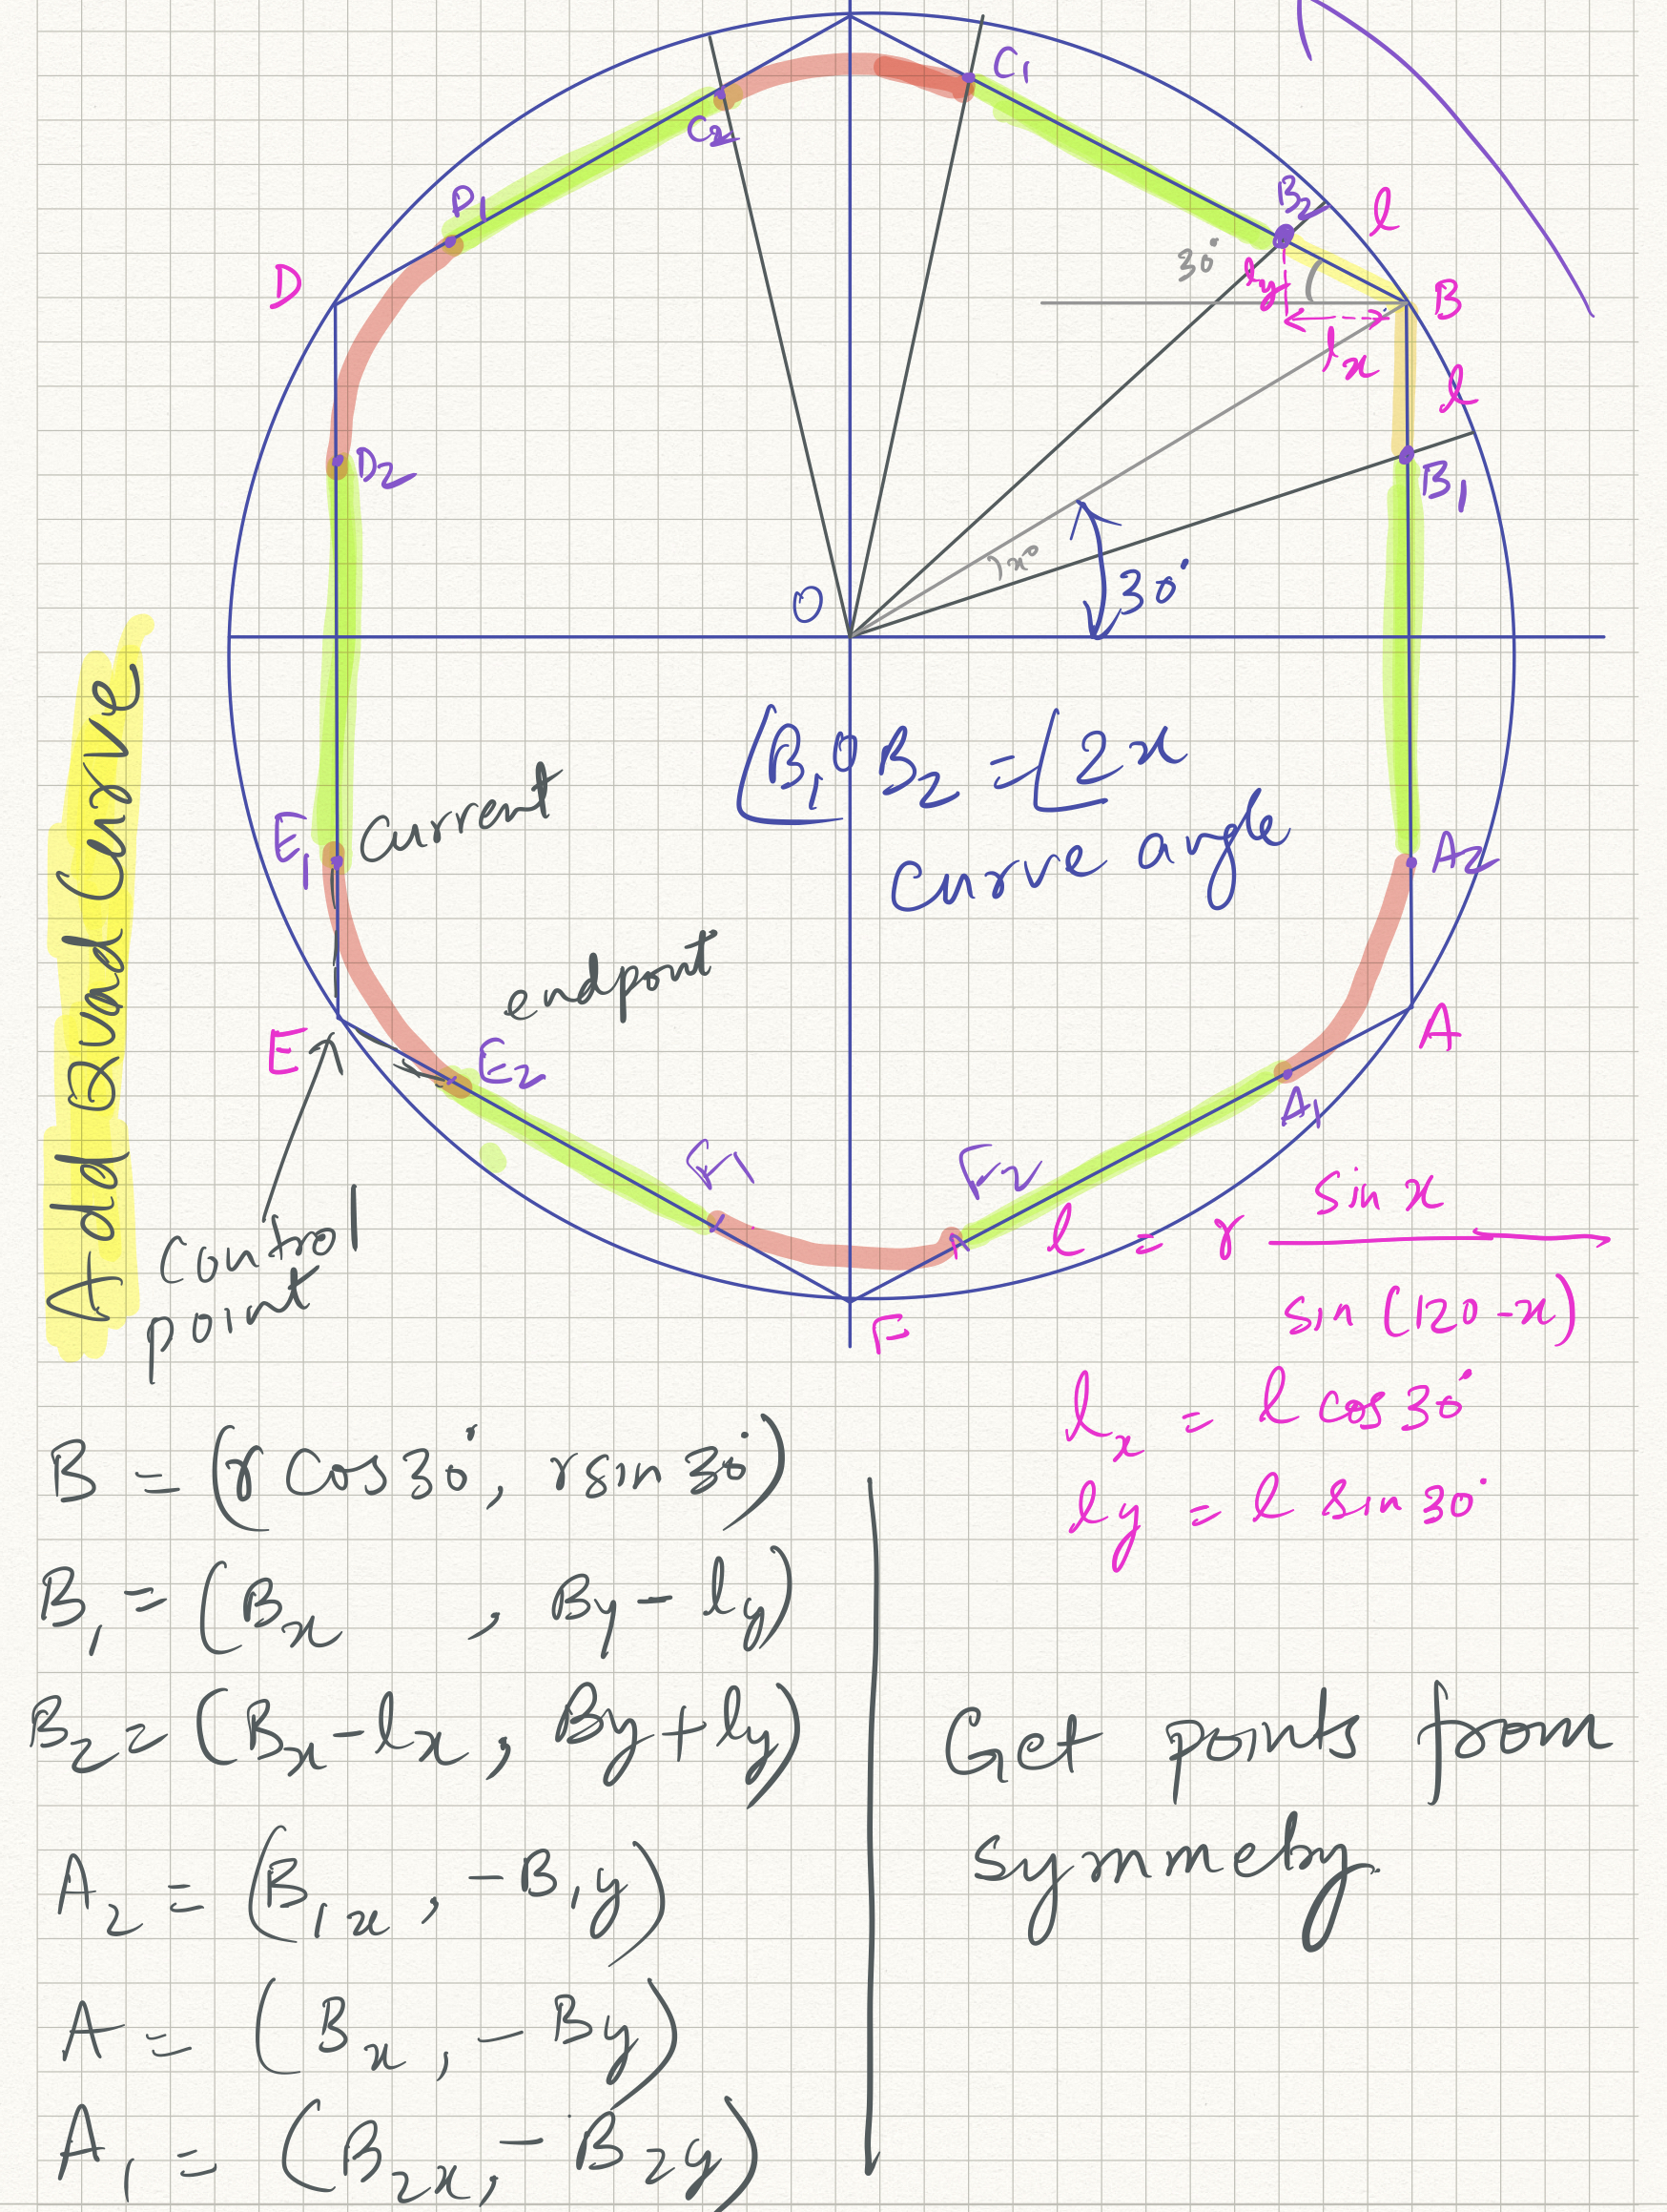 C₁
C₂
B₂
l
D₁
30°
l_y
D
B
l_x
l
D₂
B₁
x°
30°
O
∠B₁OB₂ = ∠2x
curve angle
E₁
current
A₂
endpoint
E
E₂
A
A₁
Add Quad Curve
F₁
F₂
control
point
F
l = r sin x / sin (120-x)
l_x = l cos 30°
l_y = l sin 30°
B = (r cos 30°, r sin 30°)
B₁ = (B_x , B_y - l_y)
B₂ = (B_x - l_x, B_y + l_y)
A₂ = (B₁x, -B₁y)
A = (B_x, -B_y)
A₁ = (B₂x, -B₂y)
Get points from
symmetry